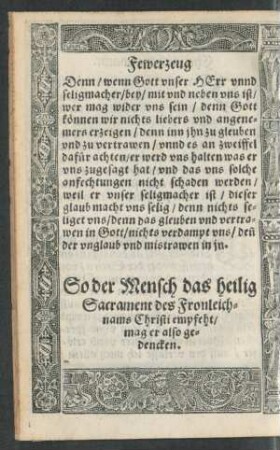 Fewerzeug
Denn / wenn Gott vnser HErr vnnd
seligmacher / bey / mit vnd neben vns ist /
wer mag wider vns sein / denn Gott
können wir nichts liebers vnd angene-
mers erzeigen / denn inn jhn zu gleuben
vnd zu vertrawen / vnnd es an zweiffel
dafür achten / er werd vns halten was er
vns zugesagt hat / vnd das vns solche
anfechtungen nicht schaden werden /
weil er vnser seligmacher ist / dieser
glaub macht vns selig / denn nichts se-
liget vns / denn das gleuben vnd vertra-
wen in Gott / nichts verdampt vns / deñ
der vnglaub vnd mistrawen in jn.
So der Mensch das heilig
Sacrament des Fronleich-
nams Christi empfeht /
mag er also ge-
dencken.